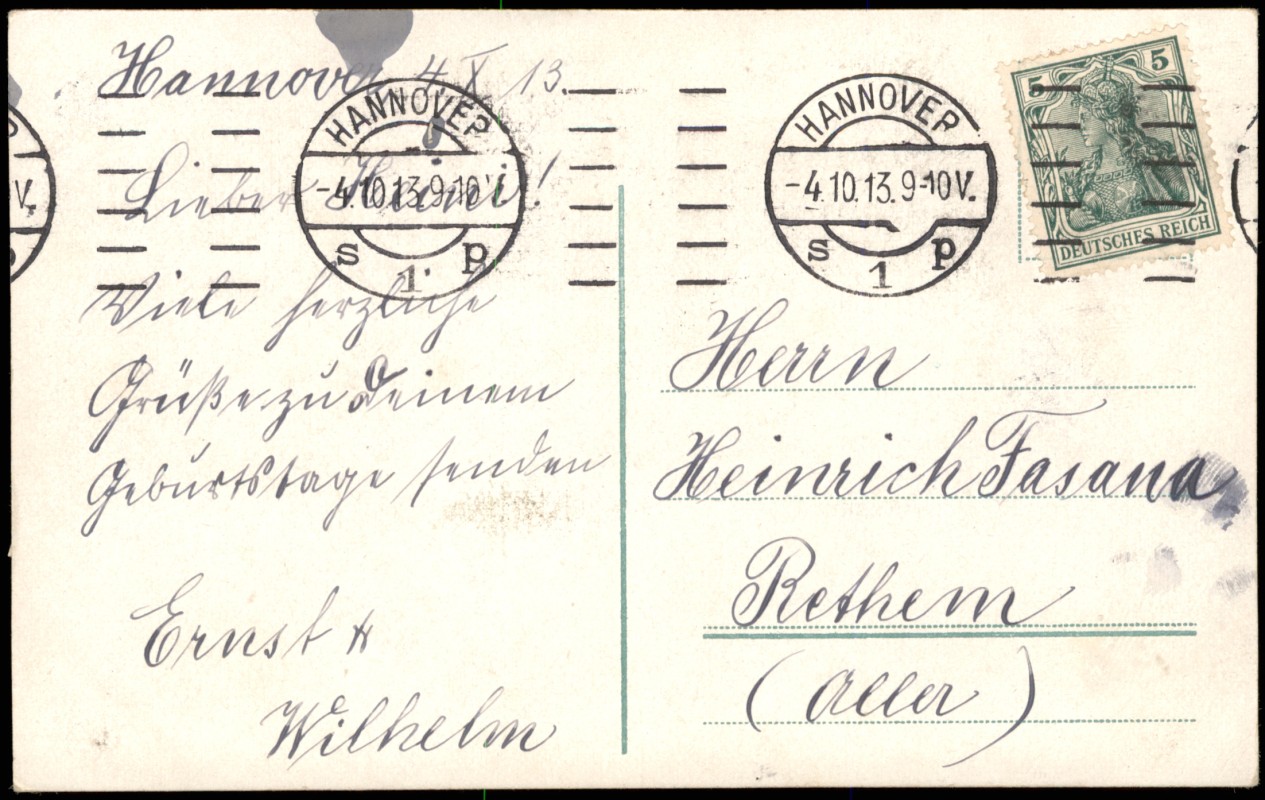 Hannover 4. X 13.
Lieber Heini!
Viele herzliche
Grüße zu Deinem
Geburtstage senden
Ernst &
Wilhelm
HANNOVER
-4.10.13.9-10V.
s 1 p
HANNOVER
-4.10.13.9-10V.
s 1 p
V.
5 5
DEUTSCHES REICH
Herrn
Heinrich Fasana
Rethem
(Aller)